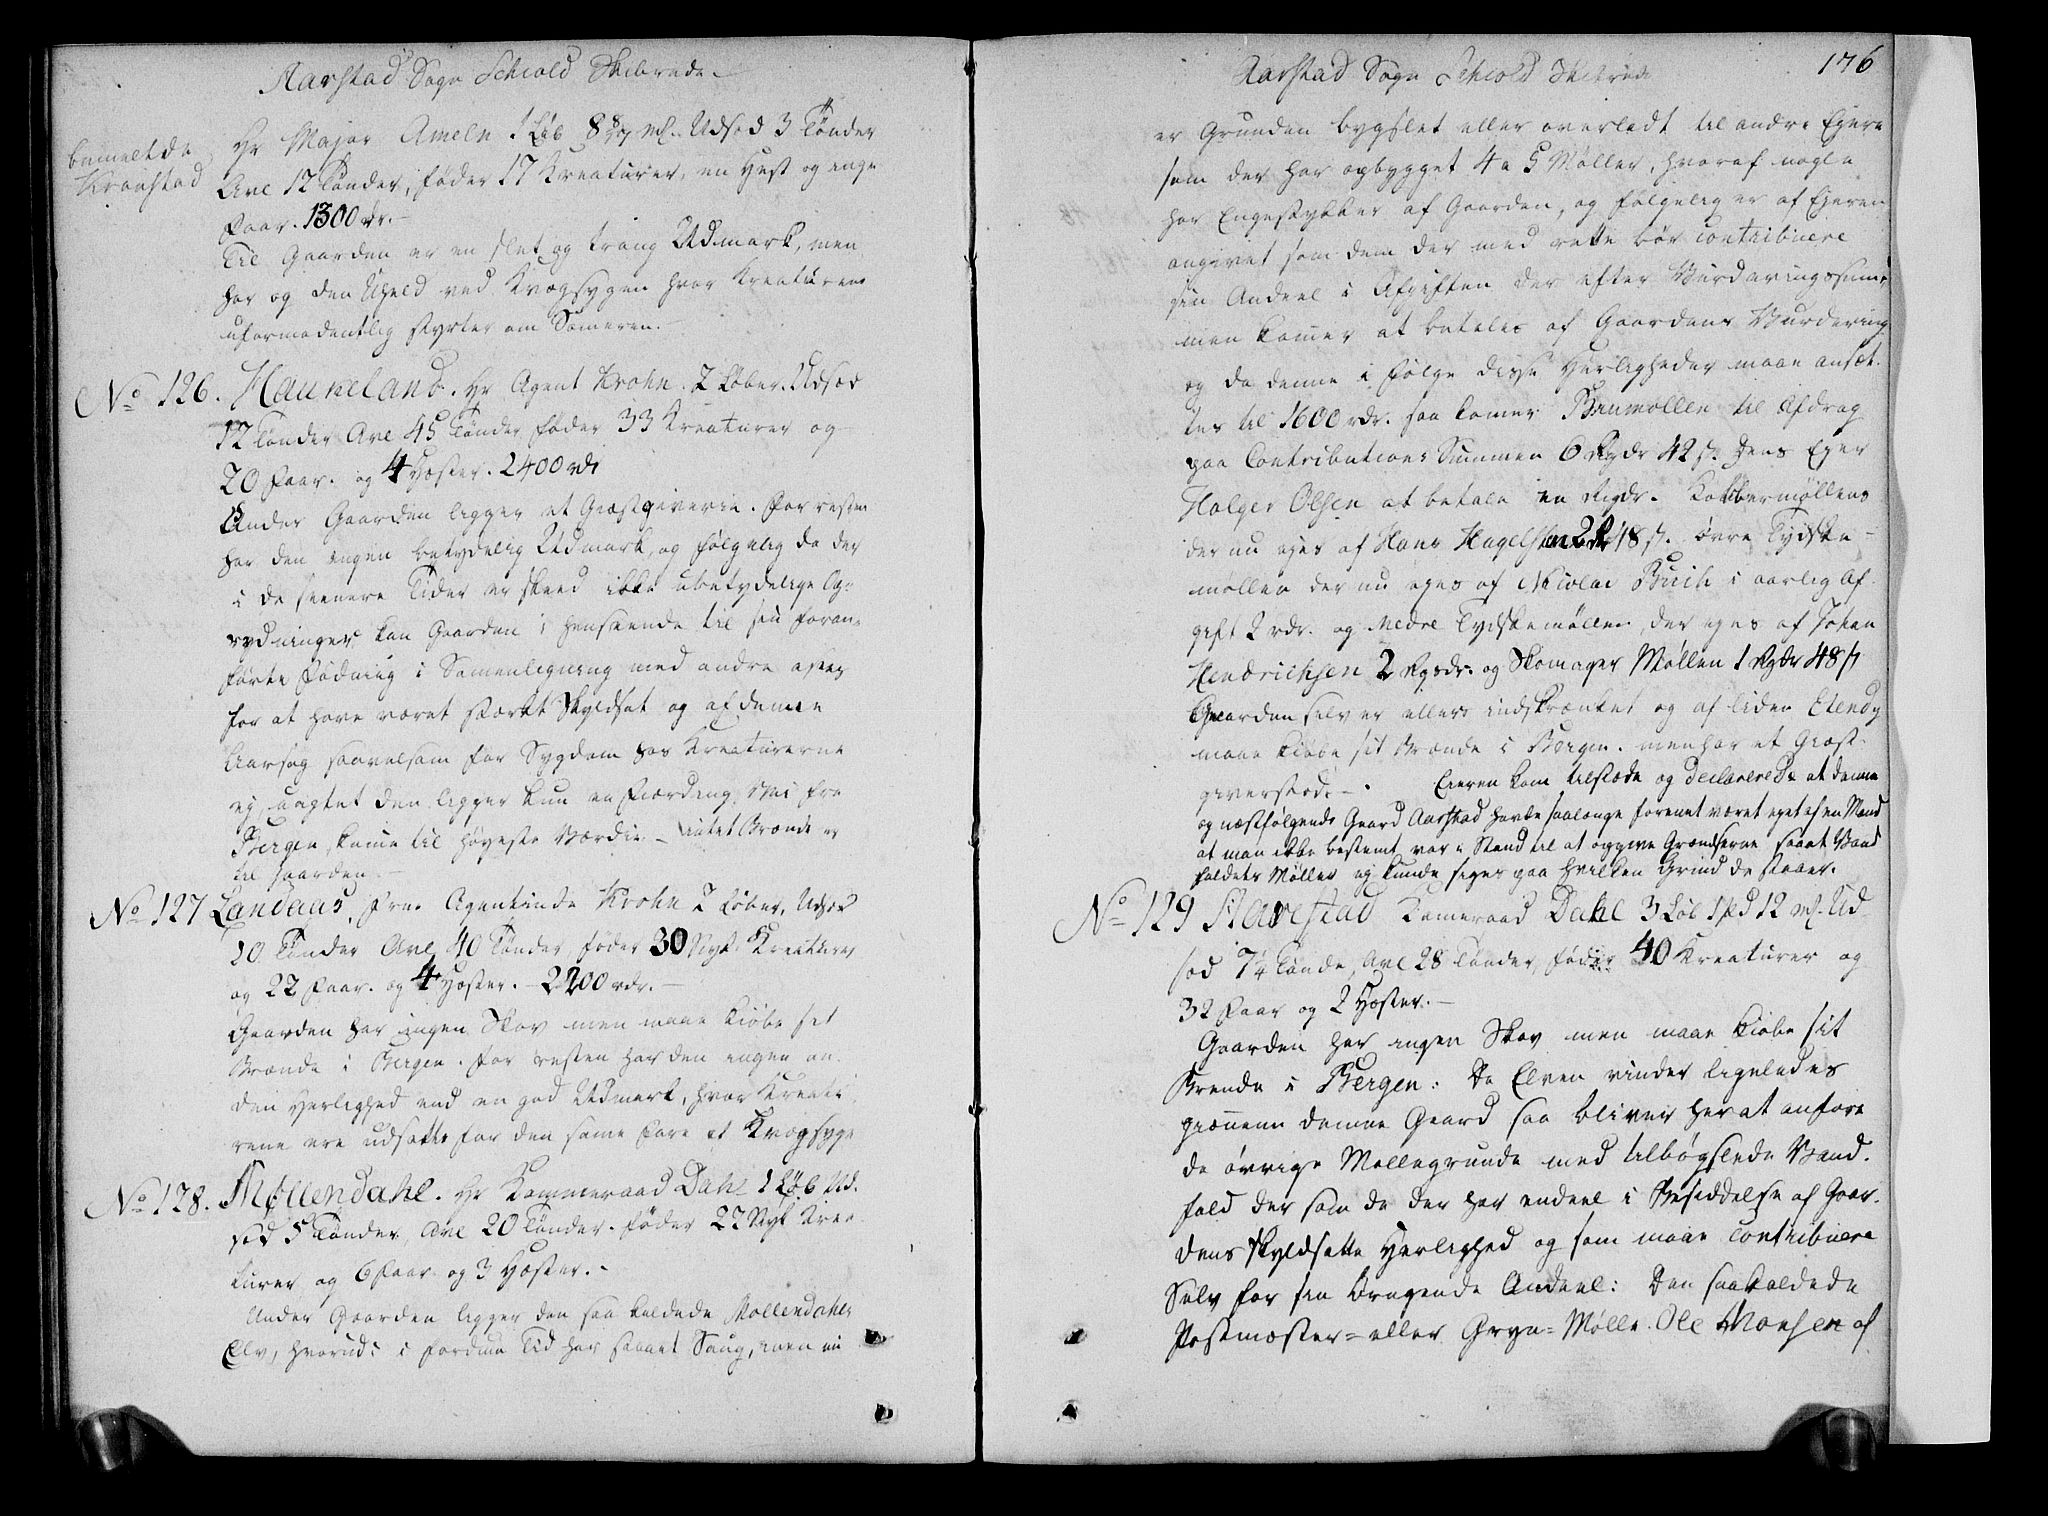 Aarstad Sogn Schiold Skibrede
bemeltde
Kronstad
Hr Major Ameln 1 Løb 8 mk. Udsæd 3 Tønder
Avl 12 Tønder, føder 17 Kreaturer, en Hest og inge
Faar. 1300 rdr.
Til Gaarden er en slet og trang Udmark, men
har og den Uheld ved Kvægsygen hvor Kreaturene
uformodentlig styrter om Someren.
No 126. Haukeland. Hr Agent Krohn. 2 Løber. Udsæd
12 Tønder Avl 45 Tønder føder 33 Kreaturer og
20 Faar. og 4 Hæster. 2400 rdr
Under Gaarden ligger et Giæstgiverie. For resten
har den ingen betydelig Udmark, og følgelig da der
i de seenere Tider er skeed ikke ubetydelige Op-
rydninger, kan Gaarden i henseende til sin foran-
førte Fødning i Samenligning med andre
for at have været stærkt Skyldsat og af denne
Aarsag saavelsom for Sygdom hos Kreaturerne
ej, uagtet den ligger kun en Fiærding Mil fra
Bergen, kome til høyeste Værdie. intet Brænde er
til Gaarden.
No 127 Landaas. Frue Agentinde Krohn 2 Løber, Udsæd
10 Tønder Avl 40 Tønder, føder 30 Kreaturer
og 22 Faar. og 4 Hæster. 2200 rdr.
Gaarden har ingen Skov men maae kiøbe sit
Brænde i Bergen. For resten har den ingen an-
den Herlighed end en god Udmark, hvor Kreatu-
rene ere udsatte for den same Fare af Kvægsyge
No 128. Møllendahl. Hr Kammeraad Dahl 1 Løb Ud-
sæd 5 Tønder, Avl 20 Tønder. føder 22 Krea-
turer og 6 Faar og 3 Hæster.
Under Gaarden ligger den saa kaldede Møllendahls
Elv, hvorudi i fordum Tid har staaet Saug, men nu
Aarstad Sogn Schiold Skibrede
176
er Grunden bygslet eller overladt til andre Ejere
som der har opbygget 4 a 5 Møller, hvoraf nogle
har Engestykker af Gaarden, og følgelig er af Ejeren
angivet som dem der med rette bør contribuere
sin Andeel i Afgiften der efter Vurderingssum-
men komer at betales af Gaardens Vurdering
og da denne i følge disse Herligheder maae ansæt-
tes til 1600 rdr. saa komer Bremøllen til Afdrag
paa Contributions Summen 6 Rgdr 42 s. Dens Ejer
Holger Olsen at betale en Rigdr. Kobbermøllens
der nu ejes af Hans Hagelsteen 2 48 s. øvre Tydske-
møllen der nu ejes af Nicolai Buch i aarlig Af-
gift 2 rdr. og Nedre Tydskemøllen, der ejes af Johan
Hendrichsen 2 Rgsdr. og Skomager Møllen 1 Rgdr 48 s
Gaarden selv er ellers indskrænket og af liden Etendu
maae kiøbe sit Brænde i Bergen. men har et Giæst-
giverstæd. Eieren kom tilstæde og declarerede at denne
og næstfølgende Gaard Aarstad havde saalænge forenet været eget af en Mand
at man ikke bestemt var i Stand til at opgive Grændserne saaat Vand
faldets Møller ej kunde siges paa hvilken Grund de staaer.
No 129 Aarstad Kameraad Dahl 3 Løb 1 pd 12 mk. Ud-
sæd 7 1/4 Tønde, Avl 28 Tønder, føder 40 Kreaturer og
32 Faar og 2 Hæster.
Gaarden har ingen Skov men maae kiøbe sit
Brende i Bergen: Da Elven rinder ligeledes
giænnem denne Gaard saa bliver her at anføre
de øvrige Møllegrunde med tilbøgslede Vand-
fald der som de der har endeel i Besiddelse af Gaar-
dens skyldsatte Herlighed og som maae contribuere
Selv for sin brugende Andeel: Den saakaldede
Postmester- eller Gryn-Mølle. Ole Monsen af